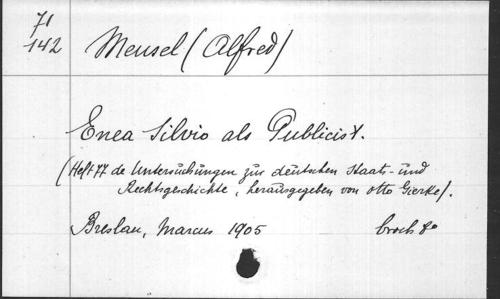 71
142
Meusel (Alfred)
Enea Silvio als Publicist.
(Heft 77 de Untersuchungen zur deutschen Staats- und
Rechtsgeschichte, herausgegeben von Otto Gierke).
Breslau, Marcus 1905 broch 8o